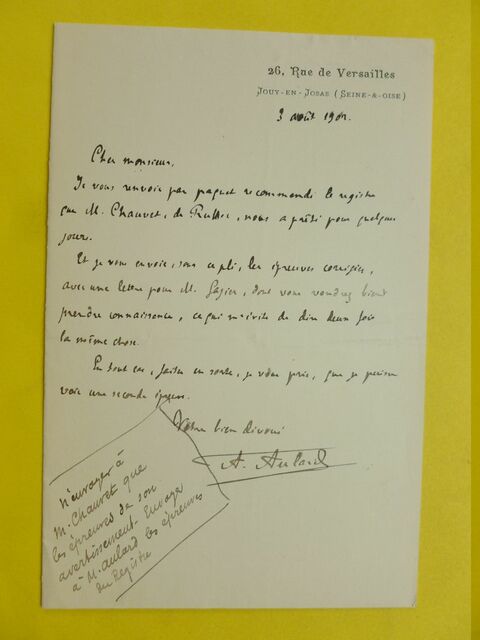 26, Rue de Versailles
Jouy-en-Josas (Seine-&-Oise)
3 août 190
Cher monsieur,
Je vous renvoie par paquet recommandé le registre
que M. Chauvet, de, nous a prêté pour quelques
jours.
Et je vous envoie, sous ce pli, les épreuves corrigées,
avec une lettre pour M., dont vous voudrez bien
prendre connaissance, ce qui m'évite de dire deux fois
la même chose.
En tout cas, faites en sorte, je vous prie, que je puisse
voir une seconde épreuve.
Votre bien dévoué
A. Aulard
n'envoyer à
M. Chauvet que
les épreuves de son
avertissement. Envoyer
à M. Aulard les épreuves
du Registre